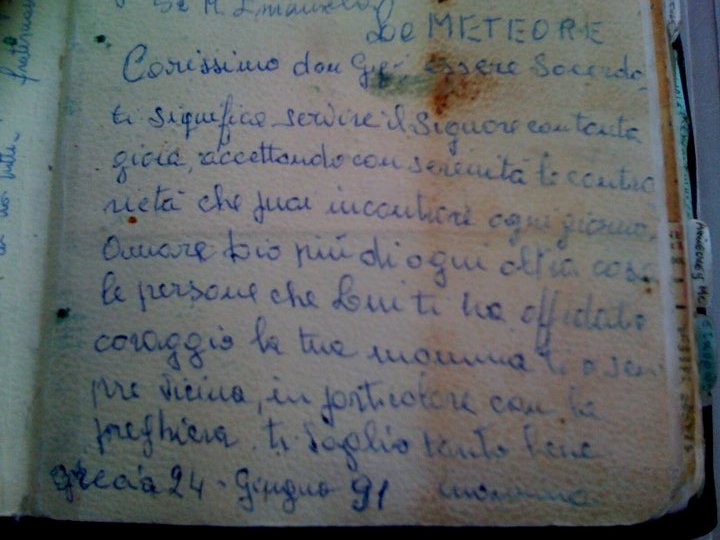 Le METEORE
Carissimo don essere Sacerdo-
ti significa servire il Signore con tanta
gioia, accettando con serenità le contra
rietà che puoi incontrare ogni giorno.
Amare Dio più di ogni altra cosa
le persone che Lui ti ha affidato
coraggio la tua mamma ti è sem
pre vicina, in particolare con la
preghiera. ti voglio tanto bene
grecia 24 - Giugno 91 mamma